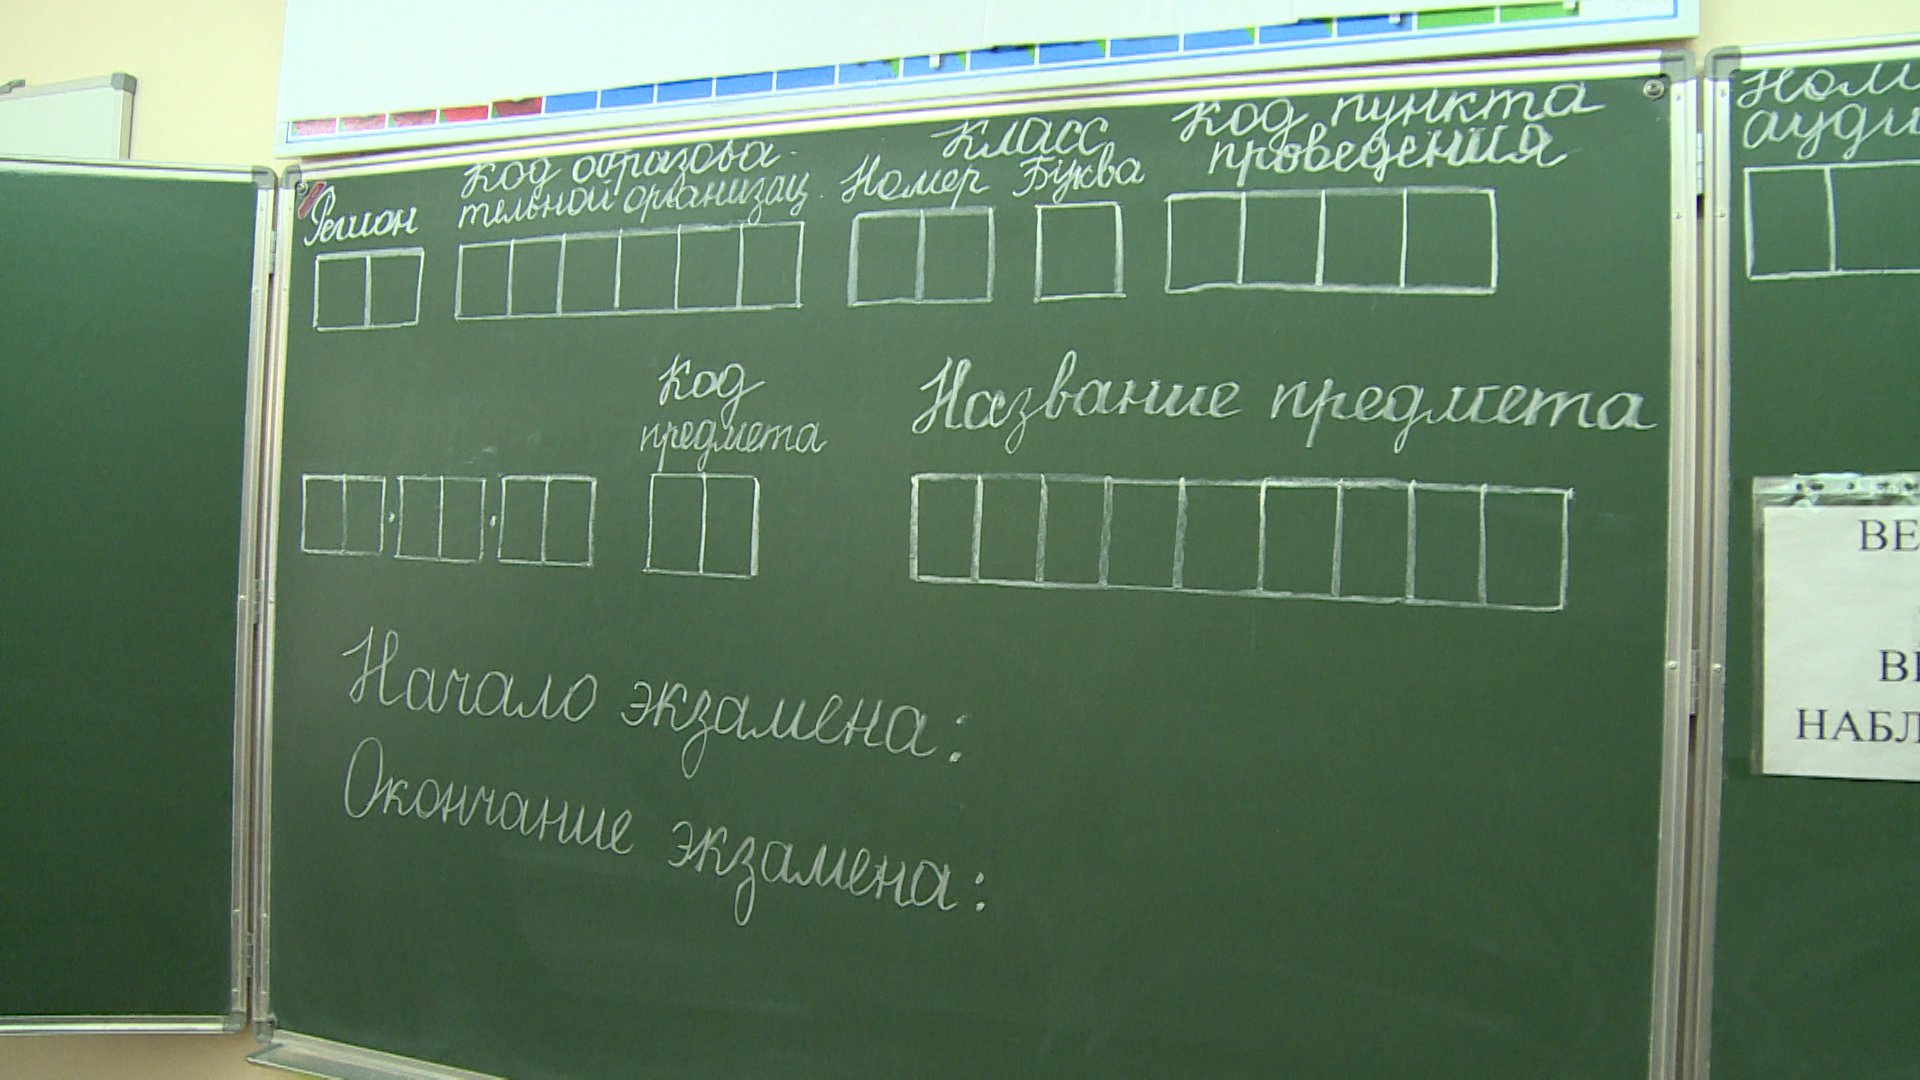 Регион
Код образова-
тельной организац.
Класс
Номер Буква
Код пункта
проведения
Код
предмета
Название предмета
Начало экзамена:
Окончание экзамена:
Ном
ауди
ВЕ
ВЕ
НАБЛ